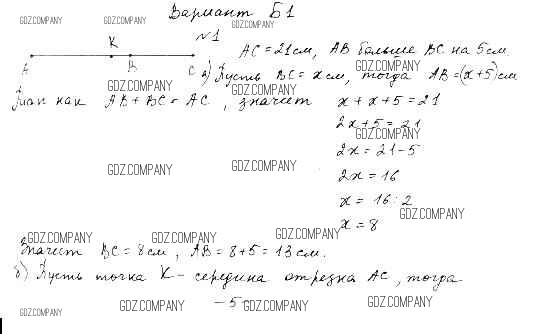 Вариант Б1
№1
К
А В С
AC = 21 см, AB больше BC на 5 см
а) Пусть BC = x см, тогда AB = (x+5) см
Так как AB + BC = AC, значит x + x + 5 = 21
2x + 5 = 21
2x = 21 - 5
2x = 16
x = 16 : 2
x = 8
Значит BC = 8 см, AB = 8 + 5 = 13 см.
б) Пусть точка К - середина отрезка AC, тогда
- 5 -
GDZ.COMPANY GDZ.COMPANY GDZ.COMPANY
GDZ.COMPANY
GDZ.COMPANY GDZ.COMPANY
GDZ.COMPANY
GDZ.COMPANY GDZ.COMPANY
GDZ.COMPANY
GDZ.COMPANY GDZ.COMPANY GDZ.COMPANY
GDZ.COMPANY GDZ.COMPANY GDZ.COMPANY GDZ.COMPANY